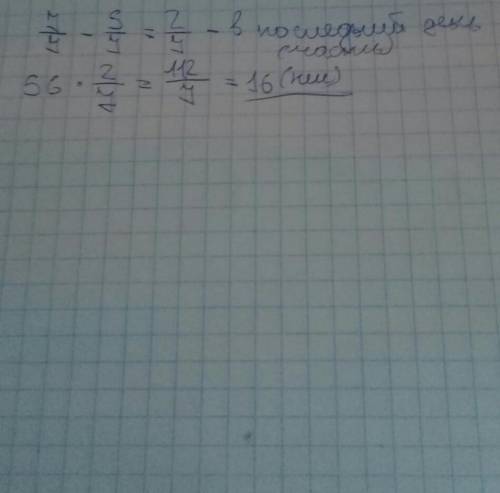 7/7 - 5/7 = 2/7 - в последний день
(части)
56 · 2/7 = 112/7 = 16 (км)